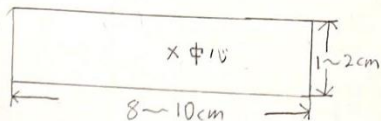 ×中心
1~2cm
8~10cm